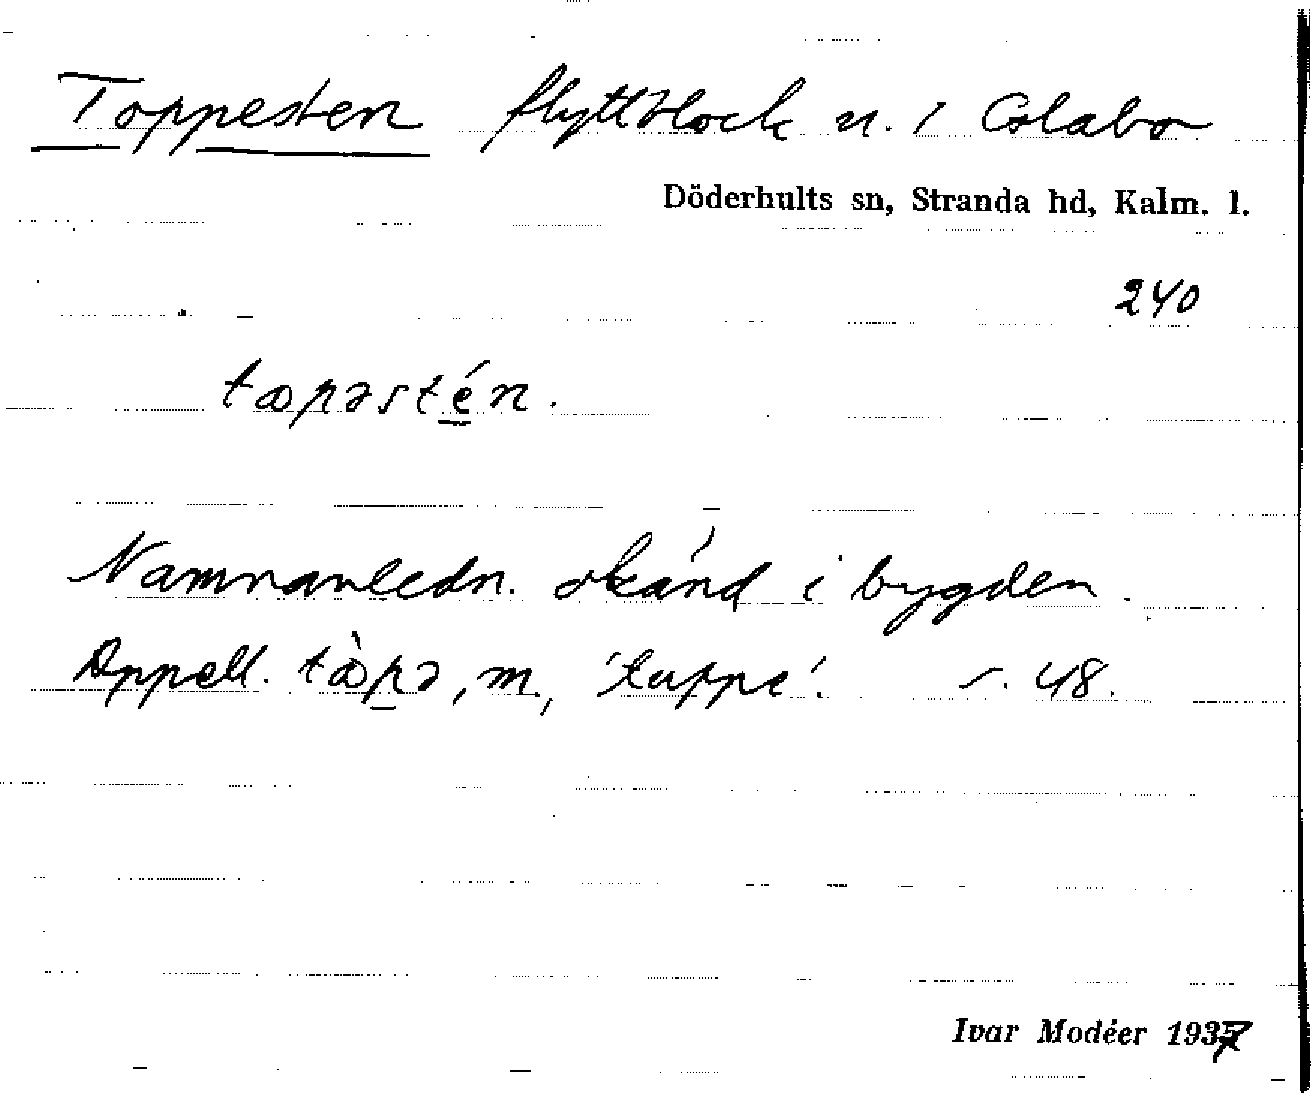 Toppesten flyttblock n. / Eolabo
Döderhults sn, Stranda hd, Kalm. l.
240
tωpəstén.
Namnanledn. okänd i bygden.
Appell. tὼpə, m., 'tuppe'. s. 48.
Ivar Modéer 1937